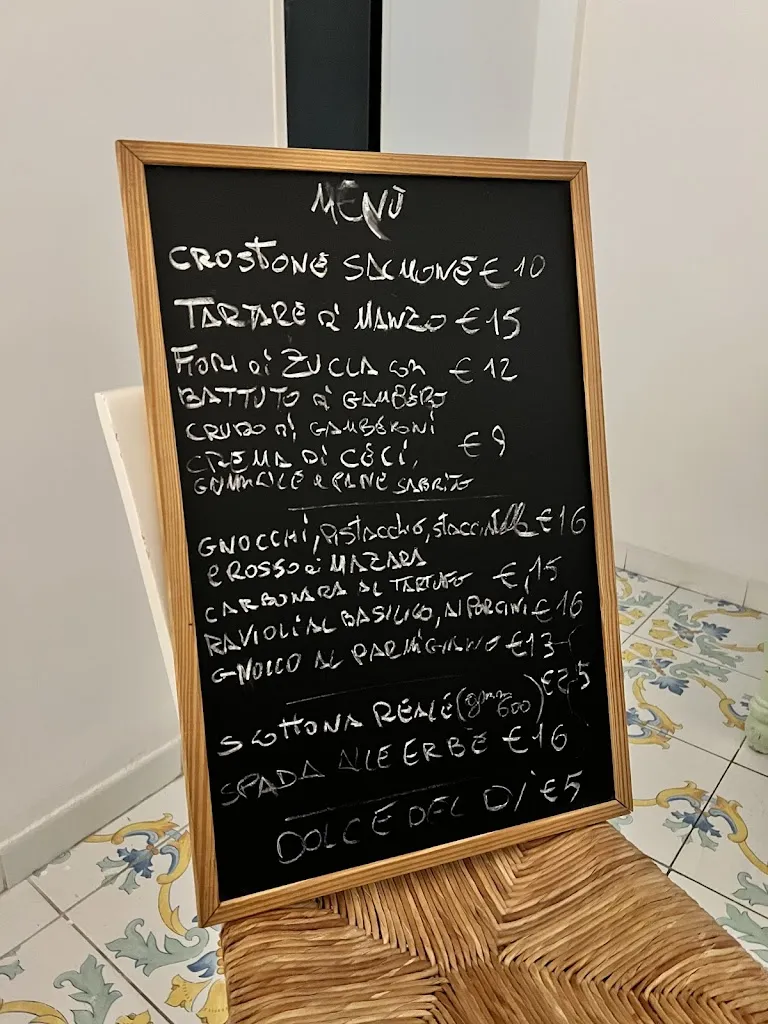 MENÙ
CROSTONE SALMONE € 10
TARTARE di MANZO € 15
FIORI di ZUCCA con € 12
BATTUTO di GAMBERO
CRUDO di GAMBERONI
CREMA DI CECI, € 9
e PANE
GNOCCHI, PISTACCHIO, € 16
e ROSSO di MAZARA
CARBONARA AL TARTUFO €,15
RAVIOLI AL BASILICO, AI PORCINI € 16
GNOCCO AL PARMIGIANO € 13
SCOTTONA REALE (gramm 600) € 25
SPADA ALLE ERBE € 16
DOLCE DEL DÌ € 5